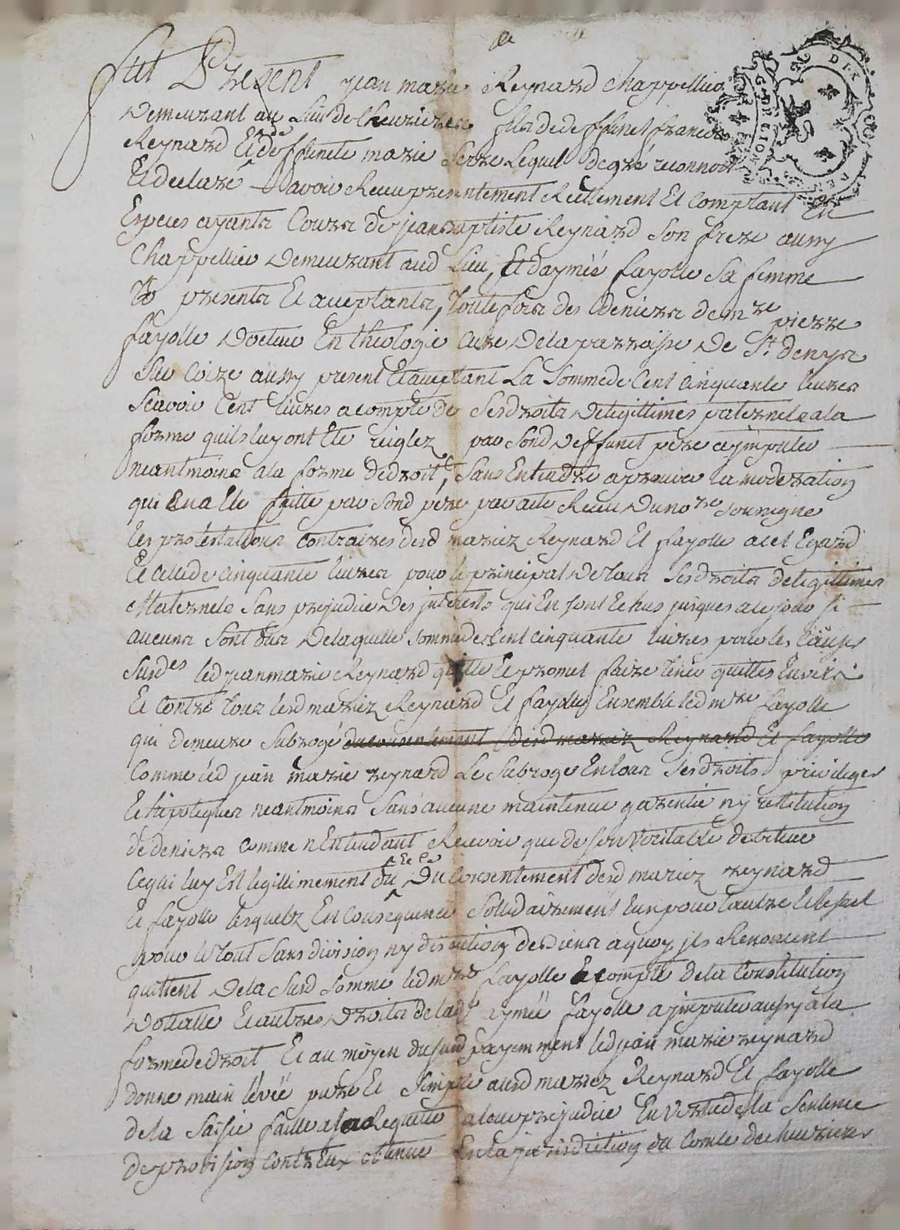 Fut Présent jean marie Reynard chappellier
Demeurant au lieu de cheurieres fils de deffunct francois
Reynard Et de deffuncte marie Serre Lequel de gré reconnoit
Et declaré avoir Receu presentement Reellement Et comptant En
Especes ayants Cours de jean baptiste Reynard Son frere aussy
Chappellier Demeurant aud Lieu, Et d'aymée fayolle Sa femme
presents Et acceptants, Toutefois des Deniers de mre pierre
fayolle Docteur En theologie curé de la parroisse De St denys
Sur Coize aussy present Et acceptant La Somme de Cent cinquante livres
Scavoir Cent livres a compte de Ses droits de legittimes paternels a la
forme quils luy ont Eté reiglez par Sond deffunct pere a imputer
neantmoins a la forme de droit, Sans Entendre aprouver la moderation
qui En a Eté faitte par Sond pere par acte Receu du nore Sousigné
Les protestations contraires desd mariez Reynard Et fayolle a cet Egard
Et Celle de cinquante livres pour le principal de tous Ses droits de legittimes
Maternels Sans prejudice des interets qui En sont Echus jusques a ce jour Si
aucuns Sont dus De laquelle Somme de Cent cinquante livres pour les causes
Susdes led jean marie Reynard quitte Et promet faire tenir quittes Envers
Et contre tous lesd mariez Reynard Et fayolle, Ensemble led mre fayolle
qui demeure Subrogé du consentement desd mariez Reynard Et fayolle
Comme led jean marie reynard Le Subroge En tous Ses droits privileges
Et hipoteques neantmoins Sans aucune maintenue garentie ny restitution
de deniers comme n'Entendant Recevoir que de Son veritable debiteur
Ce qui luy Est legittimement du Et Ce Du consentement desd mariez reynard
Et fayolle Lesquels En Consequence Sollidairement L'un pour L'autre Et le Seul
pour Le tout Sans division ny discution de biens a quoy ils Renoncent
quittent De la Susd Somme led mre fayolle a compte de la Constitution
Dottalle Et autres Droits de lade aymée fayolle a imputer aussy a la
forme de droit Et au moyen dususd payement led jean marie reynard
donne main Levée pure Et Simple ausd mariez Reynard Et fayolle
de la Saisie faitte a Sa Requete a leur prejudice En vertu de la Sentence
de provision contr'Eux obtenue En la jurisdiction du Comté de cheurieres